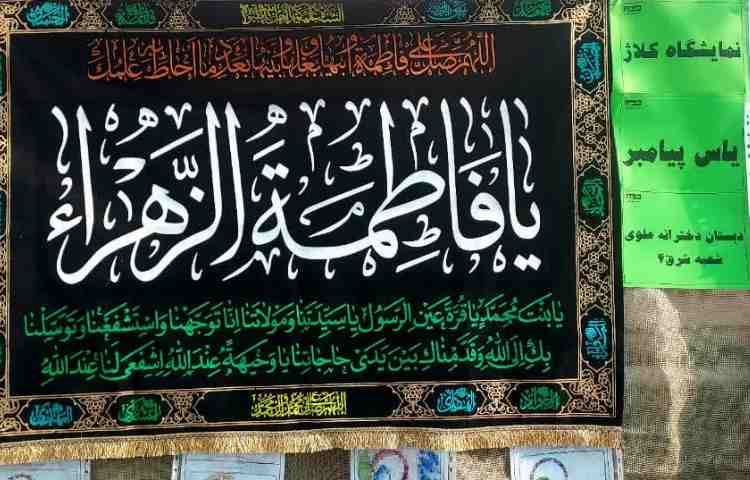 اللهم صل علی فاطمة وابیها وبعلها وبنیها بعدد ما احاط به علمك
یا فاطمة الزهراء
یا بنت محمد یا قرة عین الرسول یا سیدتنا ومولاتنا انا توجهنا واستشفعنا وتوسلنا
بك الی الله وقدمناك بین یدی حاجاتنا یا وجیهة عندالله اشفعی لنا عندالله
نمایشگاه کلاژ
یاس پیامبر
دبستان دخترانه علوی
شعبه شرق ۴